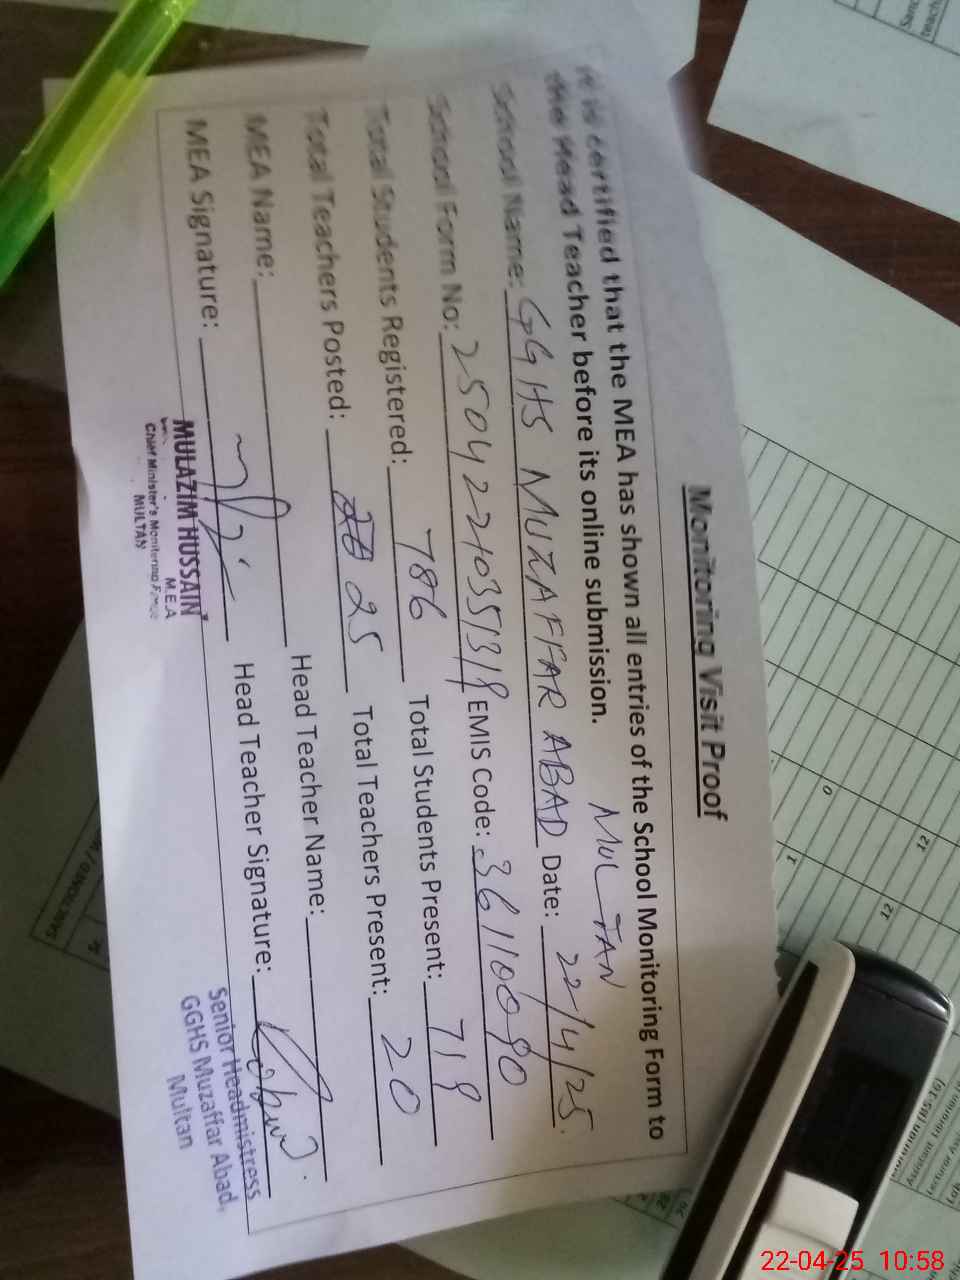 Monitoring Visit Proof
It is certified that the MEA has shown all entries of the School Monitoring Form to
the Head Teacher before its online submission.
MULTAN
School Name: GGHS MUZAFFAR ABAD Date: 22/4/25.
School Form No: EMIS Code: 36110090
Total Students Registered: 786 Total Students Present: 719
Total Teachers Posted: 25 Total Teachers Present: 20
MEA Name: Head Teacher Name:
MEA Signature: Head Teacher Signature:
MULAZIM HUSSAIN
M.E.A
Chief Minister's Monitoring Force
MULTAN
Senior Headmistress
GGHS Muzaffar Abad,
Multan
SANCTIONED /
Sr.
0
12
1
12
(BS-16)
Assistant Librarian
22-04-25 10:58